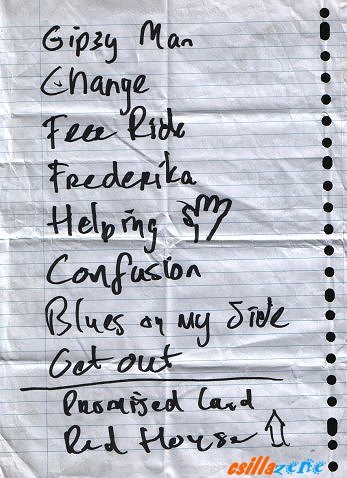 Gipzy Man
Change
Free Ride
Frederika
Helping
Confusion
Blues on my Side
Get out
Promised Land
Red House
csillazene